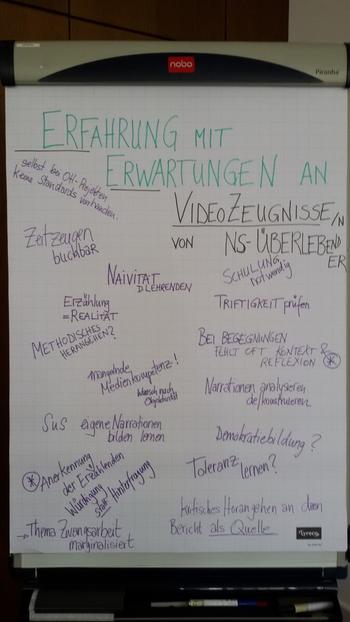 nobo
Piranha
ERFAHRUNG MIT
ERWARTUNGEN AN
VIDEOZEUGNISSE/N
VON NS-ÜBERLEBENDER
selbst bei OH-Projekten
keine Standards vorhanden.
Zeitzeugen
buchbar
SCHULUNG
notwendig
NAIVITÄT
D. LEHRENDEN
Erzählung
= REALITÄT
TRIFTIGKEIT prüfen
METHODISCHES
HERANGEHEN?
BEI BEGEGNUNGEN
FEHLT OFT KONTEXT &
REFLEXION *
mangelnde
Medienkompetenz!
Wunsch nach
Objektivität
Narrationen analysieren
de/konstruieren
SuS eigene Narrationen
bilden lernen
Demokratiebildung?
* Anerkennung
der Erzählenden
Würdigung
statt Hinterfragung
Toleranz
lernen?
kritisches Herangehen an den
Bericht als Quelle
→ Thema Zwangsarbeit
marginalisiert